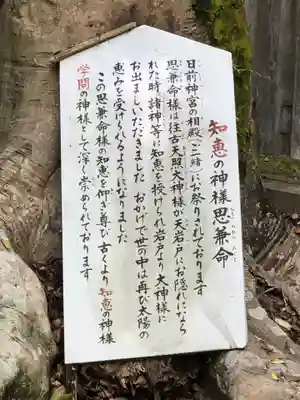 知恵の神様思兼命
日前神宮の相殿(ご一緒)にお祭りされております
思兼命様は往古天照大神様が天岩戸にお隠れになら
れた時諸神等に知恵を授けられ岩戸より大神様に
お出ましいただきました おかげで世の中は再び太陽の
恵みを受けられるようになりました
この思兼命様の知恵を仰ぎ尊び古くより知恵の神様
学問の神様として深く崇められております